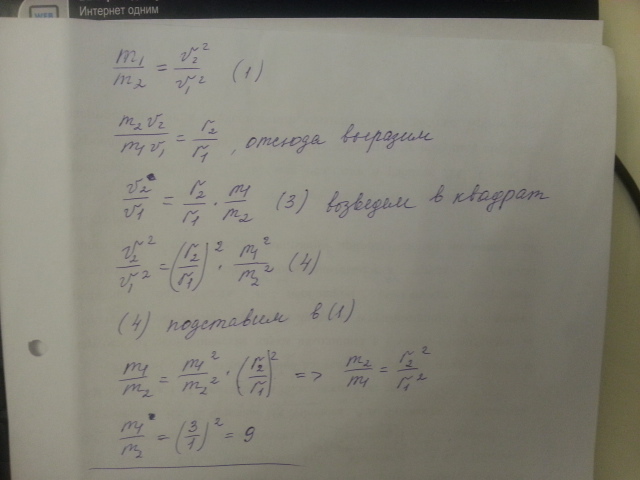 WEB
Интернет одним
m₁/m₂ = v₂²/v₁² (1)
m₂v₂/m₁v₁ = r₂/r₁, отсюда выразим
v₂/v₁ = r₂/r₁ · m₁/m₂ (3) возведем в квадрат
v₂²/v₁² = (r₂/r₁)² · m₁²/m₂² (4)
(4) подставим в (1)
m₁/m₂ = m₁²/m₂² · (r₂/r₁)² => m₂/m₁ = r₂²/r₁²
m₁/m₂ = (3/1)² = 9